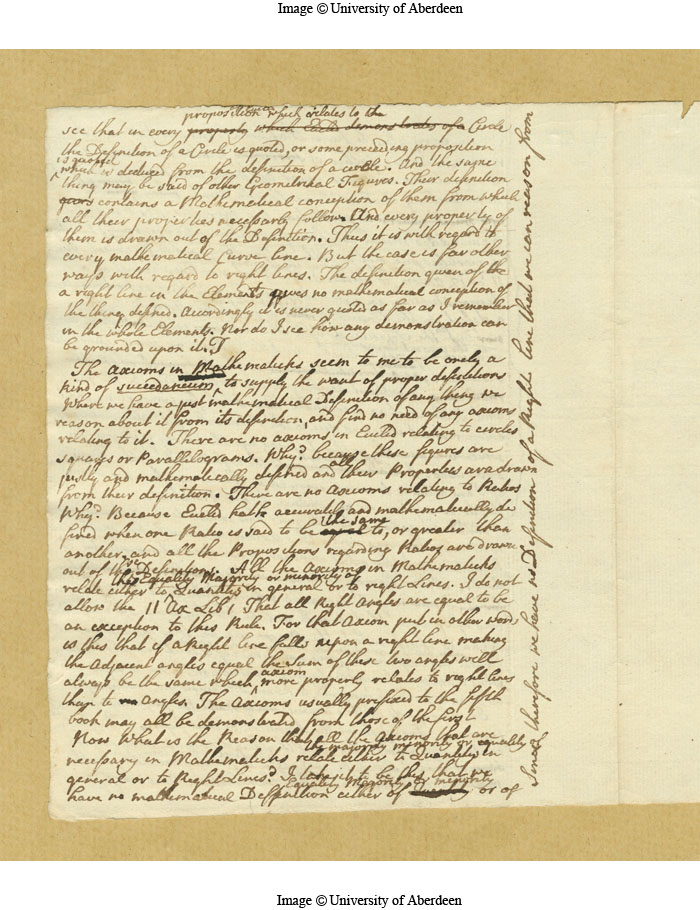 Image © University of Aberdeen
proposition which relates to the
see that in every property which Euclid demonstrates of a Circle
the Definition of a Circle is quoted, or some preceding proposition
is quoted
which is deduced from the definition of a circle. And the same
thing may be said of other Geometrical Figures. Their definition
contains a Mathematical conception of them from which
all their properties necessarly follow. And every property of
them is drawn out of the Definition. Thus it is with regard to
every mathematical Curve line. But the case is far other
ways with regard to right lines. The definition given of the
a right line in the Elements gives no mathematical conception of
the thing defined. Accordingly it is never quoted as far as I remember
in the whole Elements. Nor do I see how any demonstration can
be grounded upon it.
The axioms in Mathematicks seem to me to be onely a
kind of succedaneum, to supply the want of proper definitions
Where we have a just mathematical Definition of any thing we
reason about it from its definition, and find no need of any axioms
relating to it. There are no axioms in Euclid relating to circles
squares or Parallelograms. Why? because these figures are
all
justly and mathematically defined and their Properties are drawn
from their definition. There are no Axioms relating to Ratios
Why? Because Euclid hath accurately and mathematically de
the same
fined when one Ratio is said to be equal to, or greater than
another, and all the Propositions regarding Ratios are drawn
out of these Definitions. All the Axioms in Mathematicks
the Equality Majority or minority of
relate either to Quantities in general or to right Lines. I do not
allow the 11 Ax Lib 1 That all Right Angles are equal to be
an exception to this Rule. For that Axiom put in other words
is this that if a Right line falls upon a right line making
the Adjacent angles equal the Sum of these two angles will
axiom
always be the same which more properly relates to right lines
than to angles. The Axioms usually prefixed to the fifth
book may all be demonstrated from those of the first
Now What is the Reason that all the Axioms that are
the majority minority or equality of
necessary in Mathematicks relate either to Quantities in
general or to Right Lines? I take it to be this, that we
equality Majority or minority
have no mathematical Deffinition either of or of
Since therefore we have no Definition of a Right line that we can reason from
Image © University of Aberdeen